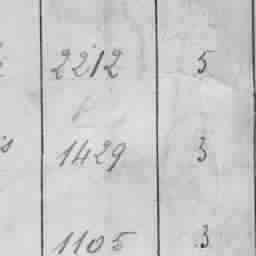 2212 5
s 1429 3
1105 3